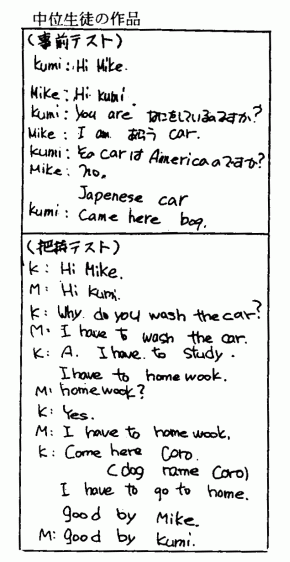 中位生徒の作品
(事前テスト)
Kumi: Hi Mike.
Mike: Hi Kumi.
Kumi: You are なにをしているのですか?
Mike: I am 払う car.
Kumi: その car は America のですか?
Mike: no.
Japenese car
Kumi: Came here bog.
(把持テスト)
K: Hi Mike.
M: Hi Kumi.
K: Why do you wash the car?
M: I have to wash the car.
K: A. I have to study.
I have to home wook.
M: home wook?
K: Yes.
M: I have to home wook.
K: Come here Coro.
(dog name Coro)
I have to go to home.
good by Mike.
M: good by Kumi.